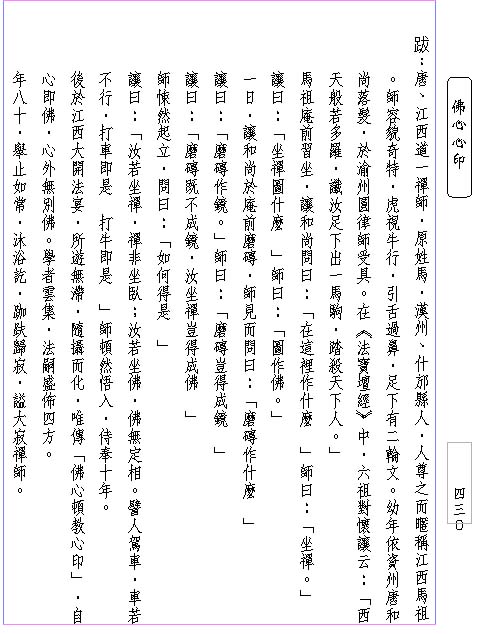 佛心心印
四三〇
跋：唐、江西道一禪師，原姓馬，漢州、什邡縣人，人尊之而暱稱江西馬祖
。師容貌奇特，虎視牛行，引舌過鼻，足下有二輪文。幼年依資州唐和
尚落髮，於渝州圓律師受具。在《法寶壇經》中，六祖對懷讓云：「西
天般若多羅，讖汝足下出一馬駒，踏殺天下人。」
馬祖庵前習坐，讓和尚問曰：「在這裡作什麼 」師曰：「坐禪。」
讓曰：「坐禪圖什麼 」師曰：「圖作佛。」
一日，讓和尚於庵前磨磚，師見而問曰：「磨磚作什麼 」
讓曰：「磨磚作鏡。」師曰：「磨磚豈得成鏡 」
讓曰：「磨磚既不成鏡，汝坐禪豈得成佛 」
師悚然起立，問曰：「如何得是 」
讓曰：「汝若坐禪，禪非坐臥；汝若坐佛，佛無定相。譬人駕車，車若
不行，打車即是 打牛即是 」師頓然悟入，侍奉十年。
後於江西大開法宴，所遊無滯，隨攝而化，唯傳「佛心頓教心印」，自
心即佛，心外無別佛。學者雲集，法嗣盛佈四方。
年八十，舉止如常，沐浴訖，跏趺歸寂，諡大寂禪師。